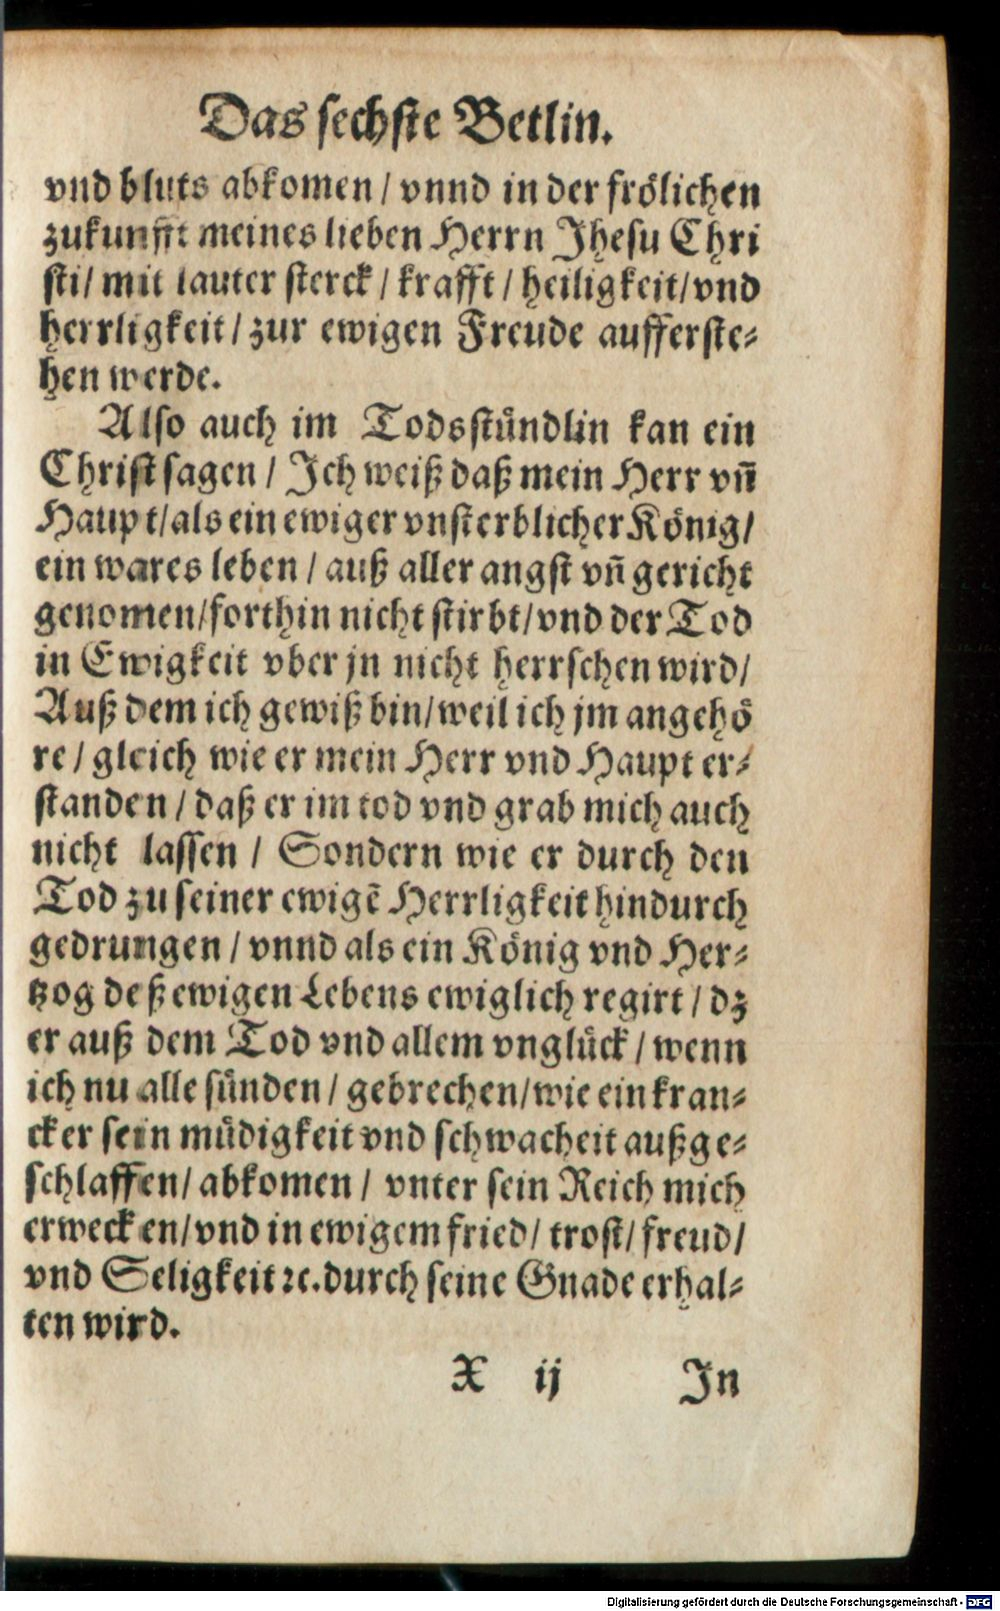 Das sechste Betlin.
vnd bluts abkomen / vnnd in der frölichen
zukunfft meines lieben Herrn Jhesu Chri
sti/ mit lauter sterck / krafft / heiligkeit/ vnd
herrligkeit / zur ewigen Freude aufferste-
hen werde.
Also auch im Todsstündlin kan ein
Christ sagen / Jch weiß daß mein Herr vñ
Haupt/ als ein ewiger vnsterblicher König/
ein wares leben / auß aller angst vñ gericht
genomen/ forthin nicht stirbt/ vnd der Tod
in Ewigkeit vber jn nicht herrschen wird/
Auß dem ich gewiß bin/ weil ich jm angehö
re / gleich wie er mein Herr vnd Haupt er-
standen / daß er im tod vnd grab mich auch
nicht lassen / Sondern wie er durch den
Tod zu seiner ewigẽ Herrligkeit hindurch
gedrungen / vnnd als ein König vnd Her-
tzog deß ewigen Lebens ewiglich regirt / dz
er auß dem Tod vnd allem vnglück / wenn
ich nu alle sünden / gebrechen/ wie ein kran-
cker sein müdigkeit vnd schwacheit außge-
schlaffen/ abkomen / vnter sein Reich mich
erwecken/ vnd in ewigem fried/ trost/ freud/
vnd Seligkeit ꝛc. durch seine Gnade erhal-
ten wird.
X ij In
Digitalisierung gefördert durch die Deutsche Forschungsgemeinschaft - DFG